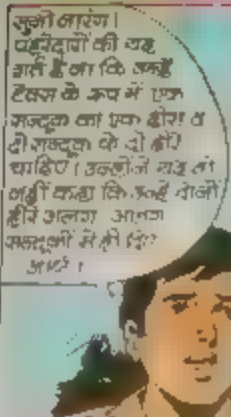 सुनो नारंग।
पहरेदारों की यह
शर्त है ना कि उन्हें
टैक्स के रूप में एक
सन्दूक का एक हीरा व
दो सन्दूक के दो हीरे
चाहिए। उन्होंने यह तो
नहीं कहा कि उन्हें दोनों
हीरे अलग अलग
सन्दूकों में से दिए
जाएं।